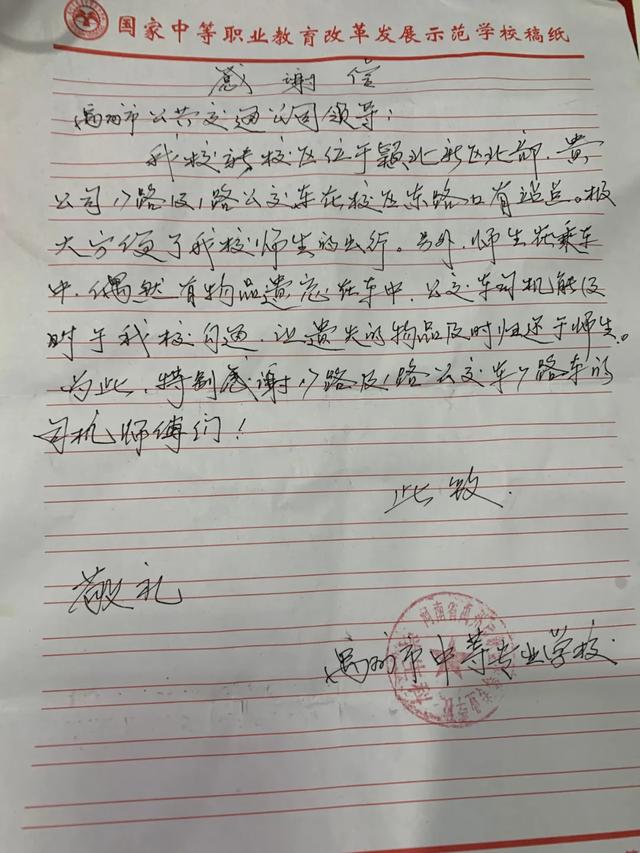 国家中等职业教育改革发展示范学校稿纸
感谢信
禹州市公共交通公司领导:
我校新校区位于颍北新区北部.贵
公司17路及1路公交车在校区东路口有站点。极
大方便了我校师生的出行。另外.师生在乘车
中.偶然有物品遗忘在车中.公交车司机能及
时于我校沟通.让遗失的物品及时归还于师生。
为此.特别感谢17路及1路公交车17路车的
司机师傅们!
此致.
敬礼
禹州市中等专业学校